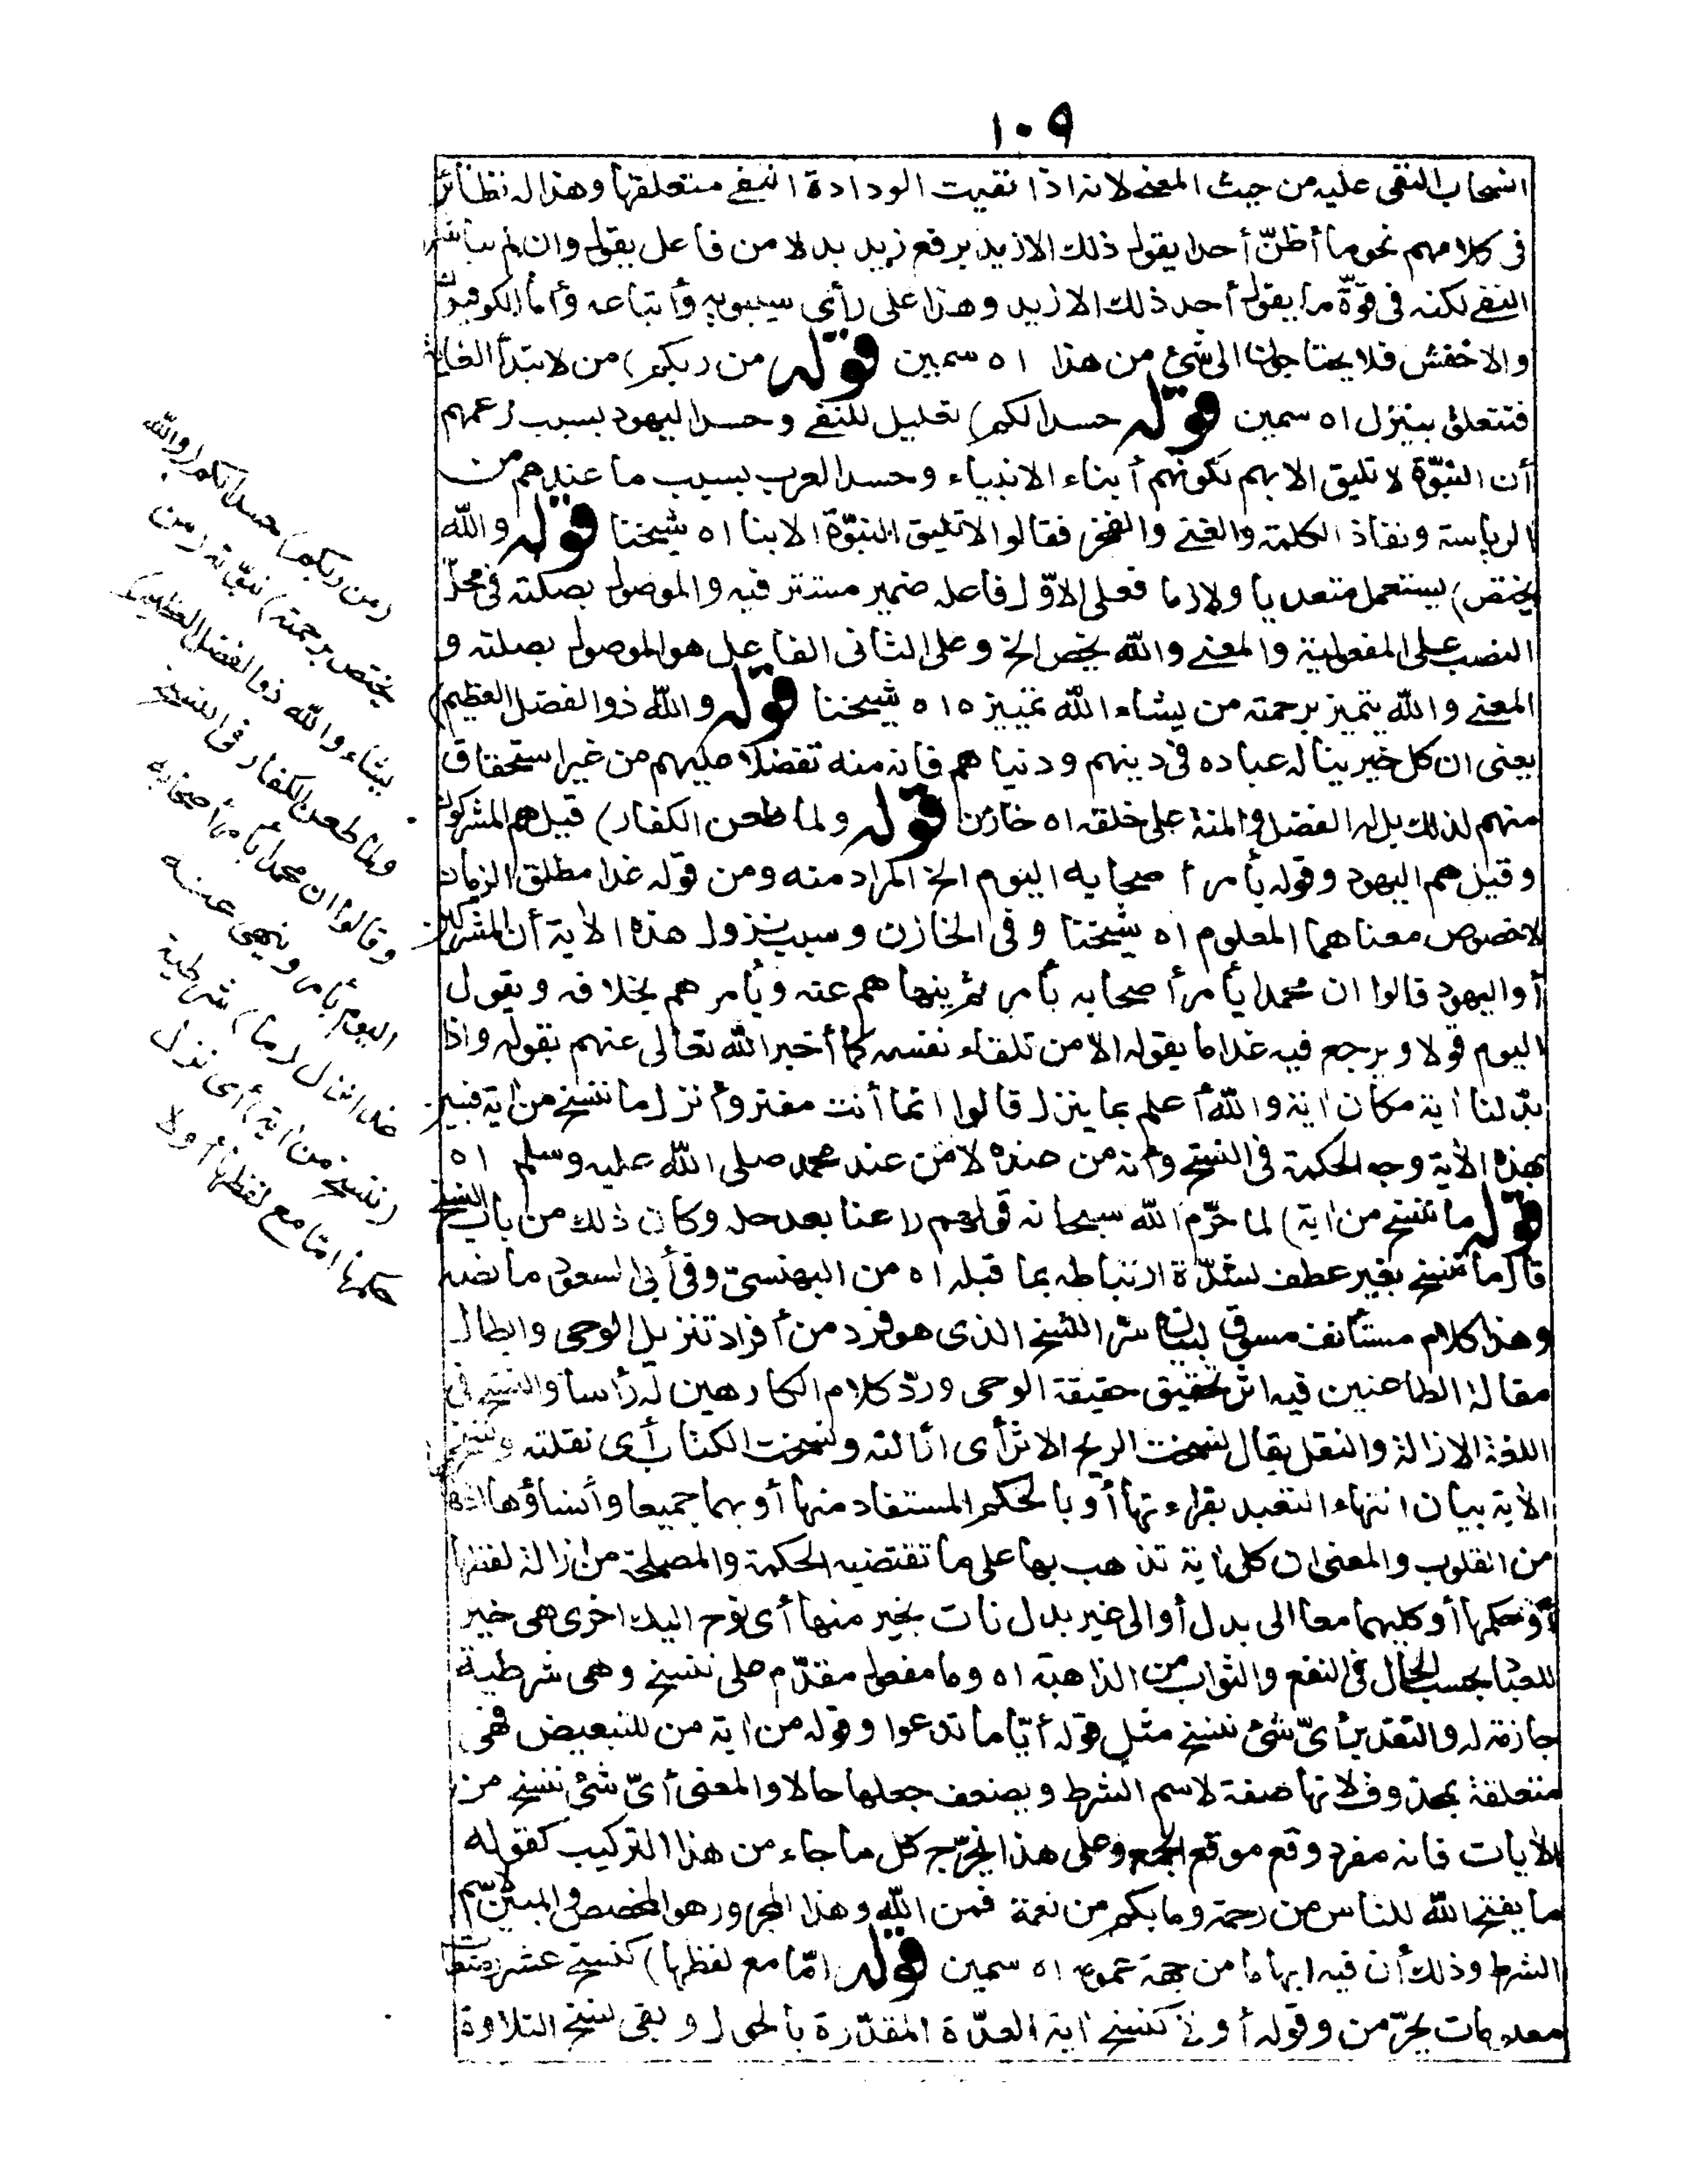 ١٠٩
انسحاب النفى عليه من حيث المعنى لانه اذا نفيت الودادة انتفى متعلقها وهذا له نظائر
فى كلامهم نحو ما أظنّ أحدا يقول ذلك الا زيد برفع زيد بدلا من فاعل يقول وان لم يباشر
النفى لكنه فى قوّة ما يقول أحد ذلك الا زيد وهذا على رأى سيبويه وأتباعه وأما الكوفيون
والاخفش فلا يحتاجون الى شئ من هذا اه سمين قوله من ربكم) من لابتدأ الغاية
فتتعلق بينزل اه سمين قوله حسدا لكم) تعليل للنفى وحسد اليهود بسبب زعمهم
أن النبوّة لا تليق الا بهم لكونهم أبناء الانبياء وحسد العرب بسبب ما عندهم من
الرياسة ونفاذ الكلمة والغنى والفخر فقالوا لا تليق النبوّة الا بنا اه شيخنا قوله والله
يختص) يستعمل متعديا ولازما فعلى الاوّل فاعله ضمير مستتر فيه والموصول بصلته فى محلّ
النصب على المفعولية والمعنى والله يخص الخ وعلى الثانى الفاعل هو الموصول بصلته و
المعنى والله يتميز برحمته من يشاء الله تمييزه اه شيخنا قوله والله ذو الفضل العظيم)
يعنى ان كل خير يناله عباده فى دينهم ودنياهم فانه منه تفضلا عليهم من غير استحقاق
منهم لذلك بل له الفضل والمنة على خلقه اه خازن قوله ولما طعن الكفار) قيل هم المشركون
وقيل هم اليهود وقوله يأمر أصحابه اليوم الخ المراد منه ومن قوله غدا مطلق الزمان
لا خصوص معناهما المعلوم اه شيخنا وفى الخازن وسبب نزول هذه الأية أن المشركين
أو اليهود قالوا ان محمدا يأمر أصحابه بأمر ثم ينهاهم عنه ويأمرهم بخلافه ويقول
اليوم قولا ويرجع فيه غدا ما يقوله الا من تلقاء نفسه كما أخبر الله تعالى عنهم بقوله واذا
بدّلنا أية مكان أية والله أعلم بما ينزل قالوا انما أنت مفتر وأنزل ما ننسخ من أية فبين
بهذه الأية وجه الحكمة فى النسخ وأنه من عنده لا من عند محمد صلى الله عليه وسلم اه
قوله ما ننسخ من أية) لما حرّم الله سبحانه قولهم راعنا بعد حله وكان ذلك من باب النسخ
قال ما ننسخ بغير عطف لشدّة ارتباطه بما قبله اه من البهنسىّ وفى أبى السعود ما نصه
وهذا كلام مستأنف مسوق لبيان سر النسخ الذى هو فرد من أفراد تنزيل الوحى وابطال
مقالة الطاعنين فيه اثر تحقيق حقيقة الوحى وردّ كلام الكارهين له رأسا والنسخ فى
اللغة الازالة والنقل يقال نسخت الريح الاثر أى ازالته ونسخت الكتاب أى نقلته ونسخ
الأية بيان انتهاء التعبد بقراءتها أو بالحكم المستفاد منها أو بهما جميعا وأنساؤها اذهابها
من القلوب والمعنى ان كل أية تذهب بها على ما تقتضيه الحكمة والمصلحة من ازالة لفظها
أو حكمها أو كليهما معا الى بدل أو الى غير بدل نات بخير منها أى نوح اليك اخرى هى خير
للعباد بحسب الحال فى النفع والثواب من الذاهبة اه وما مفعول مقدّم على ننسخ وهى شرطية
جازمة له والتقدير أىّ شئ ننسخ مثل قوله أيّا ما تدعوا وقوله من أية من للتبعيض فهى
متعلقة بمحذوف لانها صفة لاسم الشرط ويضعف جعلها حالا والمعنى أىّ شئ ننسخ من
الأيات فانه مفرد وقع موقع الجمع وعلى هذا يخرّج كل ما جاء من هذا التركيب كقوله
ما يفتح الله للناس من رحمة وما بكم من نعمة فمن الله وهذا المجرور هو المخصص والمبيّن لاسم
الشرط وذلك أن فيه ابهاما من جهة عمومه اه سمين قوله امّا مع لفظها) كنسخ عشر رضعات
معلومات يحرّ من وقوله أو لا كنسخ أية العدّة المقدّرة بالحول وبقى نسخ التلاوة
(من ربكم) حسدا لكم (والله
يختص برحمته) نبوّته (من
يشاء والله ذو الفضل العظيم)
ولما طعن الكفار فى النسخ
وقالوا ان محمدا يأمر أصحابه
اليوم بأمر وينهى عنه
غدا نزل (ما) شرطية
(ننسخ من أية) أى نزل
حكمها امّا مع لفظها أو لا